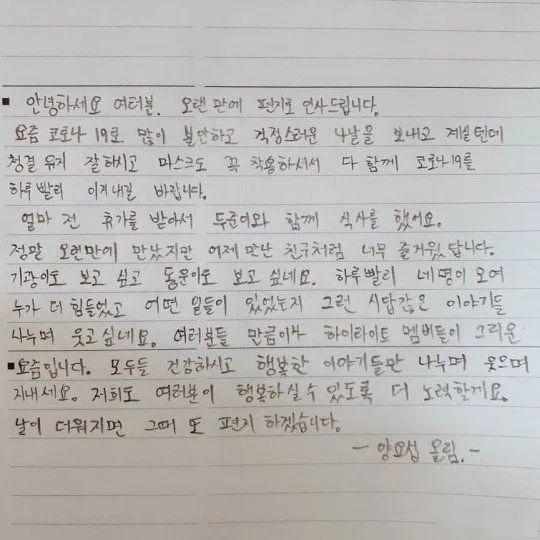 안녕하세요 여러분. 오랜 만에 편지로 인사드립니다.
요즘 코로나 19로 많이 불안하고 걱정스러운 나날을 보내고 계실텐데
청결 유지 잘하시고 마스크도 꼭 착용하셔서 다 함께 코로나19를
하루 빨리 이겨내길 바랍니다.
얼마 전 휴가를 받아서 두준이와 함께 식사를 했어요.
정말 오랜만에 만났지만 어제 만난 친구처럼 너무 즐거웠답니다.
기광이도 보고 싶고 동운이도 보고 싶네요. 하루빨리 네명이 모여
누가 더 힘들었고 어떤 일들이 있었는지 그런 시답잖은 이야기들
나누며 웃고싶네요. 여러분들 만큼이나 하이라이트 멤버들이 그리운
요즘입니다. 모두들 건강하시고 행복한 이야기들만 나누며 웃으며
지내세요. 저희도 여러분이 행복하실수 있도록 더 노력할게요.
날이 더워지면 그때 또 편지 하겠습니다.
- 양요섭 올림. -